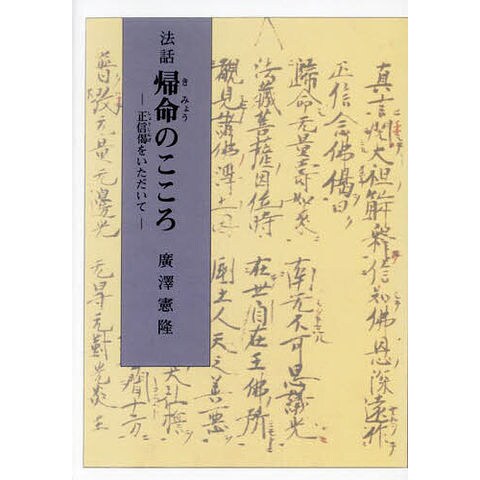 法話 帰命のこころ
きみょう
―正信偈をいただいて―
しょうしんげ
廣澤憲隆
真言閲大祖解釋信知佛恩深遠作
正信念佛偈曰
歸命无量壽如来
南无不可思議光
法藏菩薩因位時
在世自在王佛所
覩見諸佛淨土因
國土人天之善惡
普放无量无邊光
无㝵无對光炎王